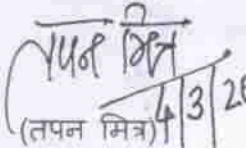 तपन मित्र
(तपन मित्र) 4/3/26